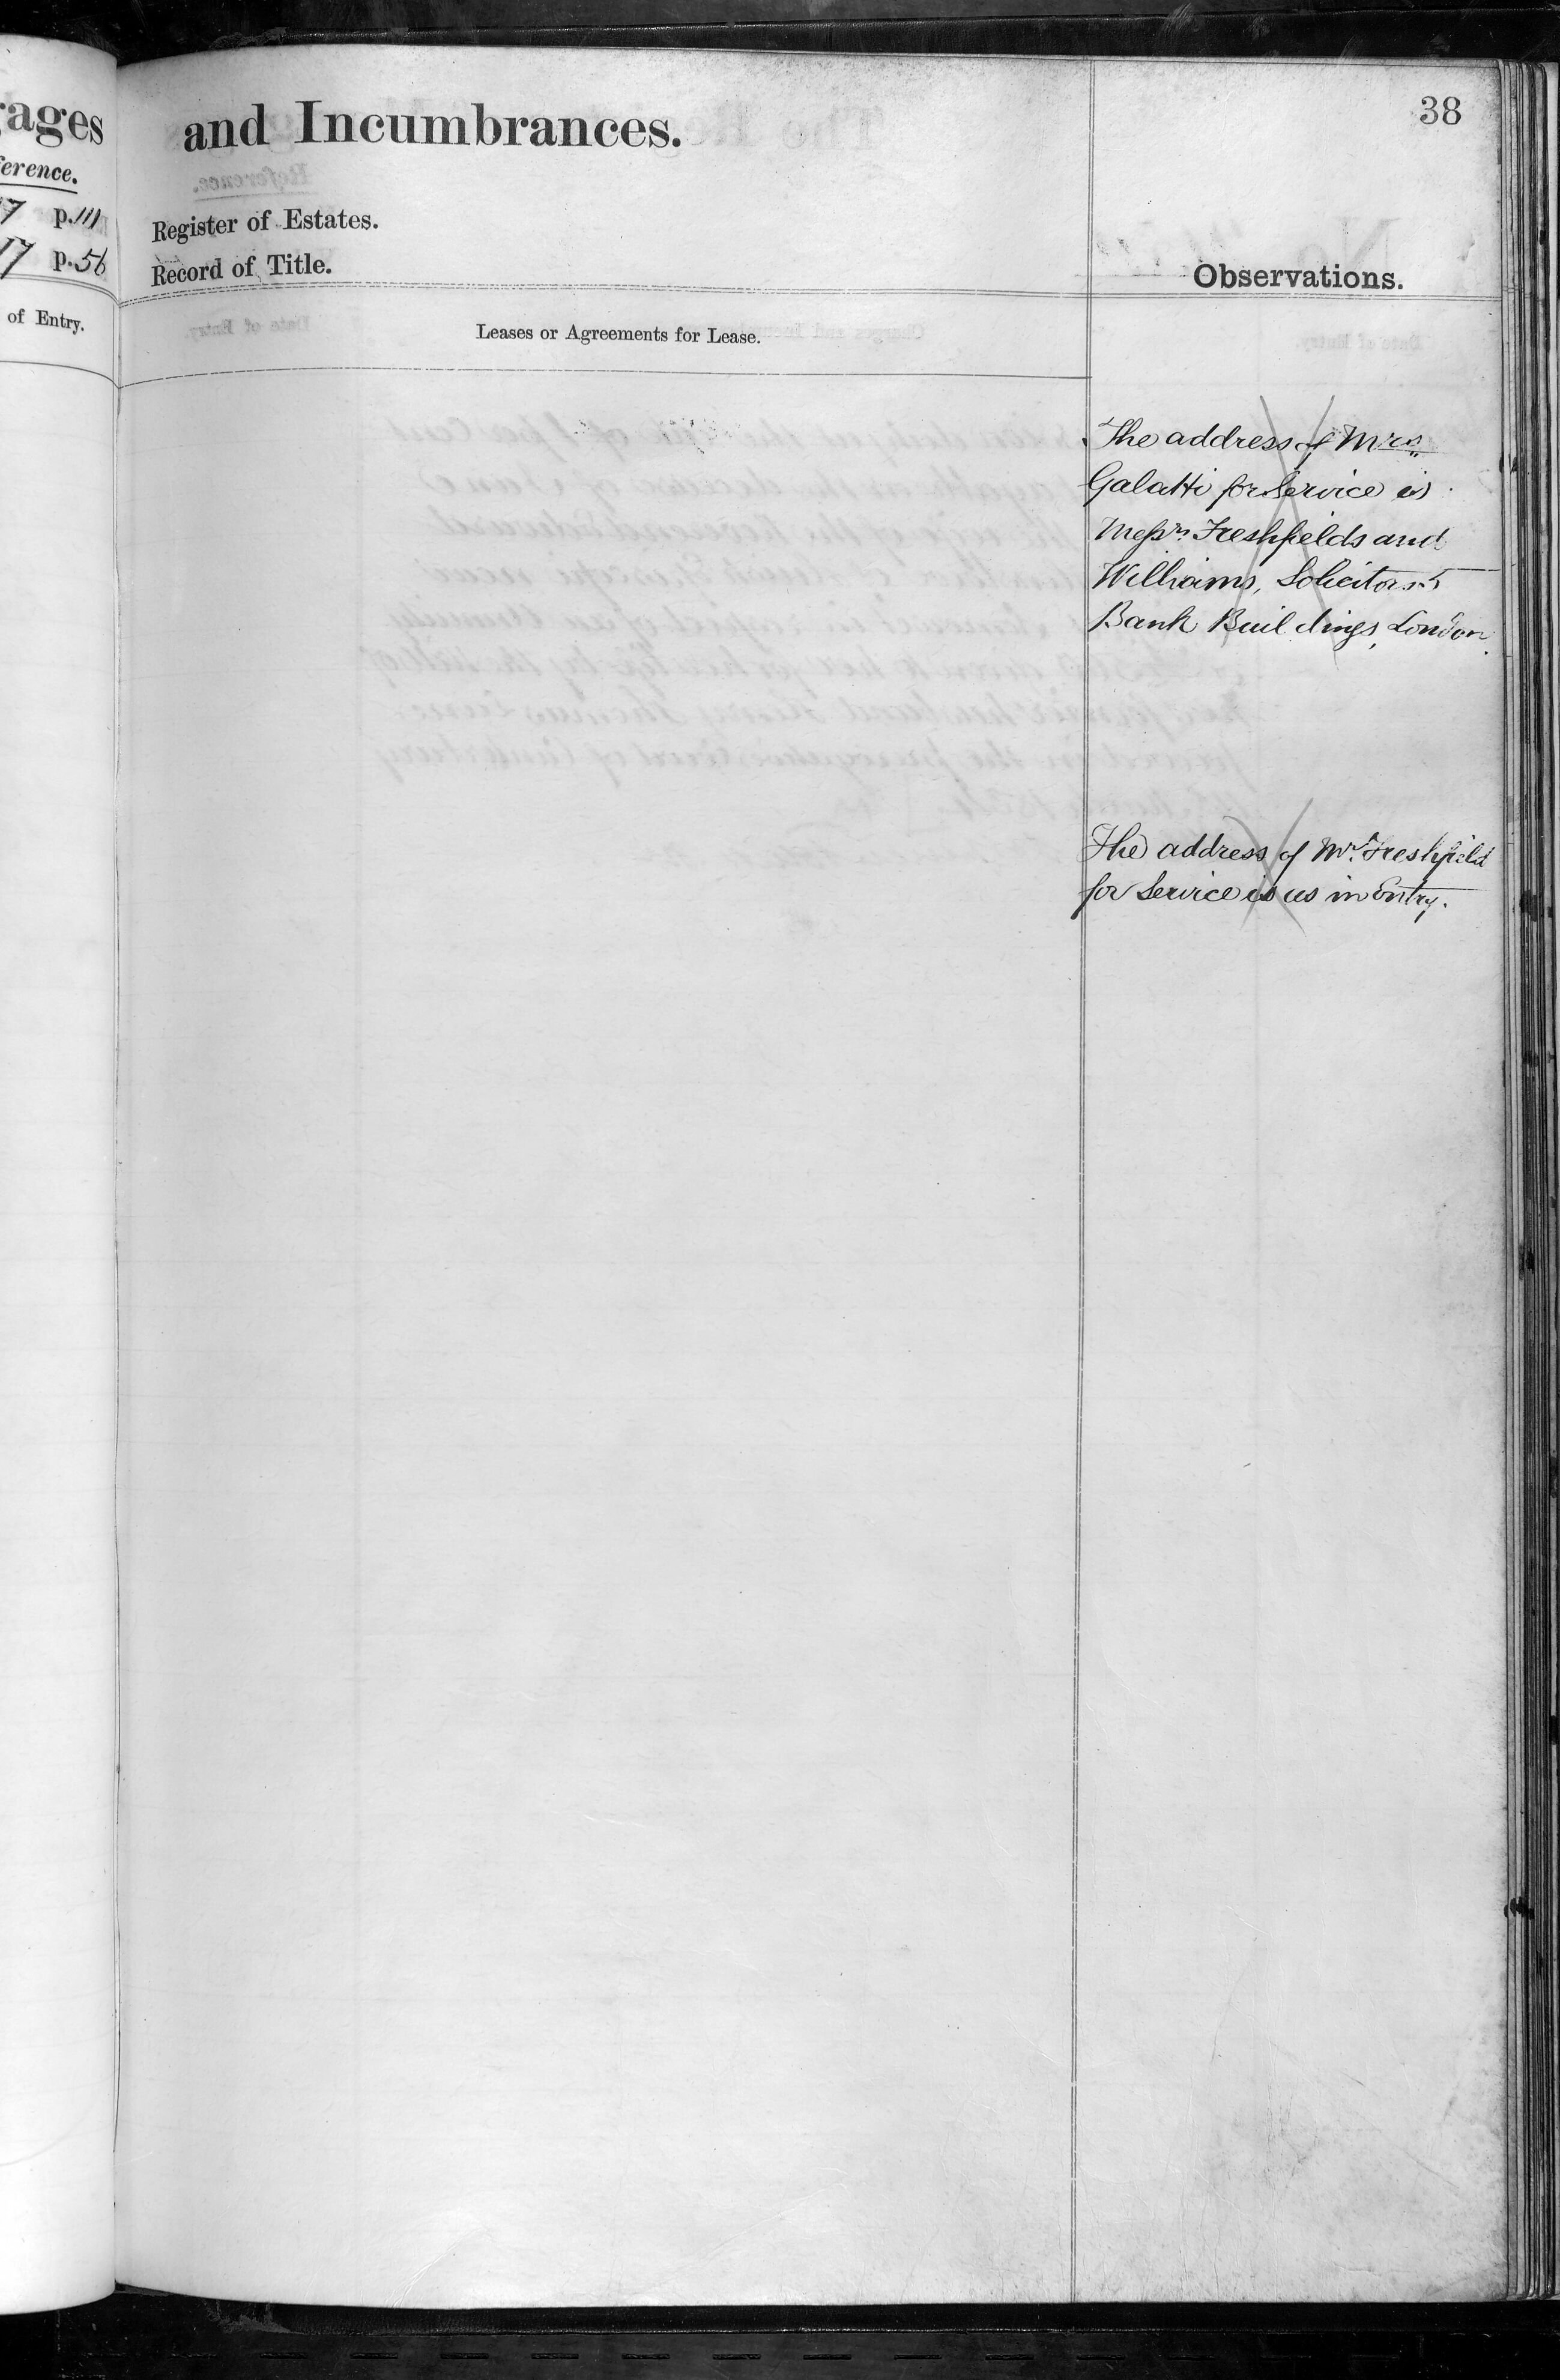 rages
ference.
7 p. 111
17 p. 56
of Entry.
and Incumbrances.
38
Register of Estates.
Record of Title.
Observations.
Leases or Agreements for Lease.
The address of Mrs
Galatti for Service is
Messrs Freshfields and
Williams, Solicitors 5
Bank Buildings, London.
The address of Mr. Freshfield
for Service is as in Entry.